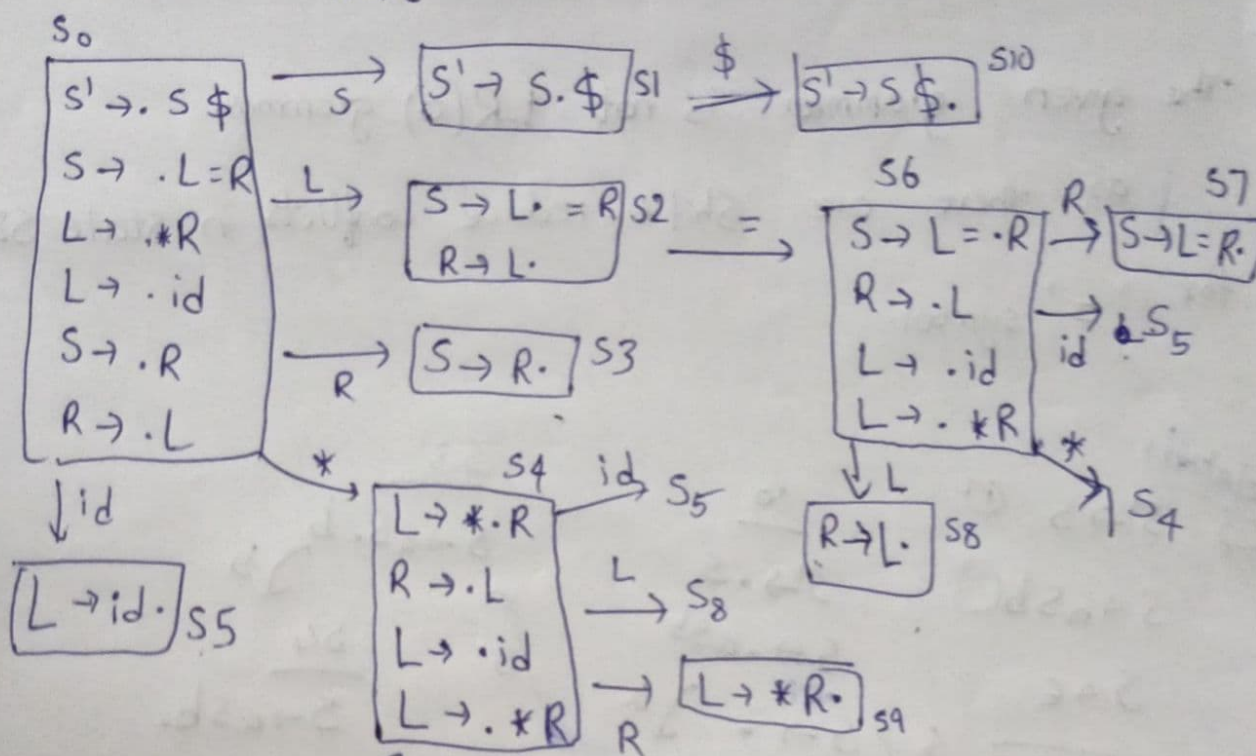 S0
S' → . S $
S → . L = R
L → . * R
L → . id
S → . R
R → . L
S
S' → S . $
S1
$
S' → S $ .
S10
L
S → L . = R
R → L .
S2
=
S6
S → L = . R
R → . L
L → . id
L → . * R
R
S7
S → L = R .
id
S5
*
S4
L
R → L .
S8
R
S → R .
S3
*
S4
L → * . R
R → . L
L → . id
L → . * R
id
S5
L
S8
R
L → * R .
S9
id
L → id .
S5